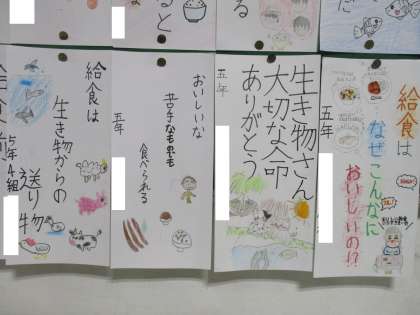 給食は
なぜこんなに
おいしいの!?
五年
生き物さん
大切な命
ありがとう
五年
おいしいな
苦手な
食べられる
五年
給食は
生き物からの
送り物
5年4組